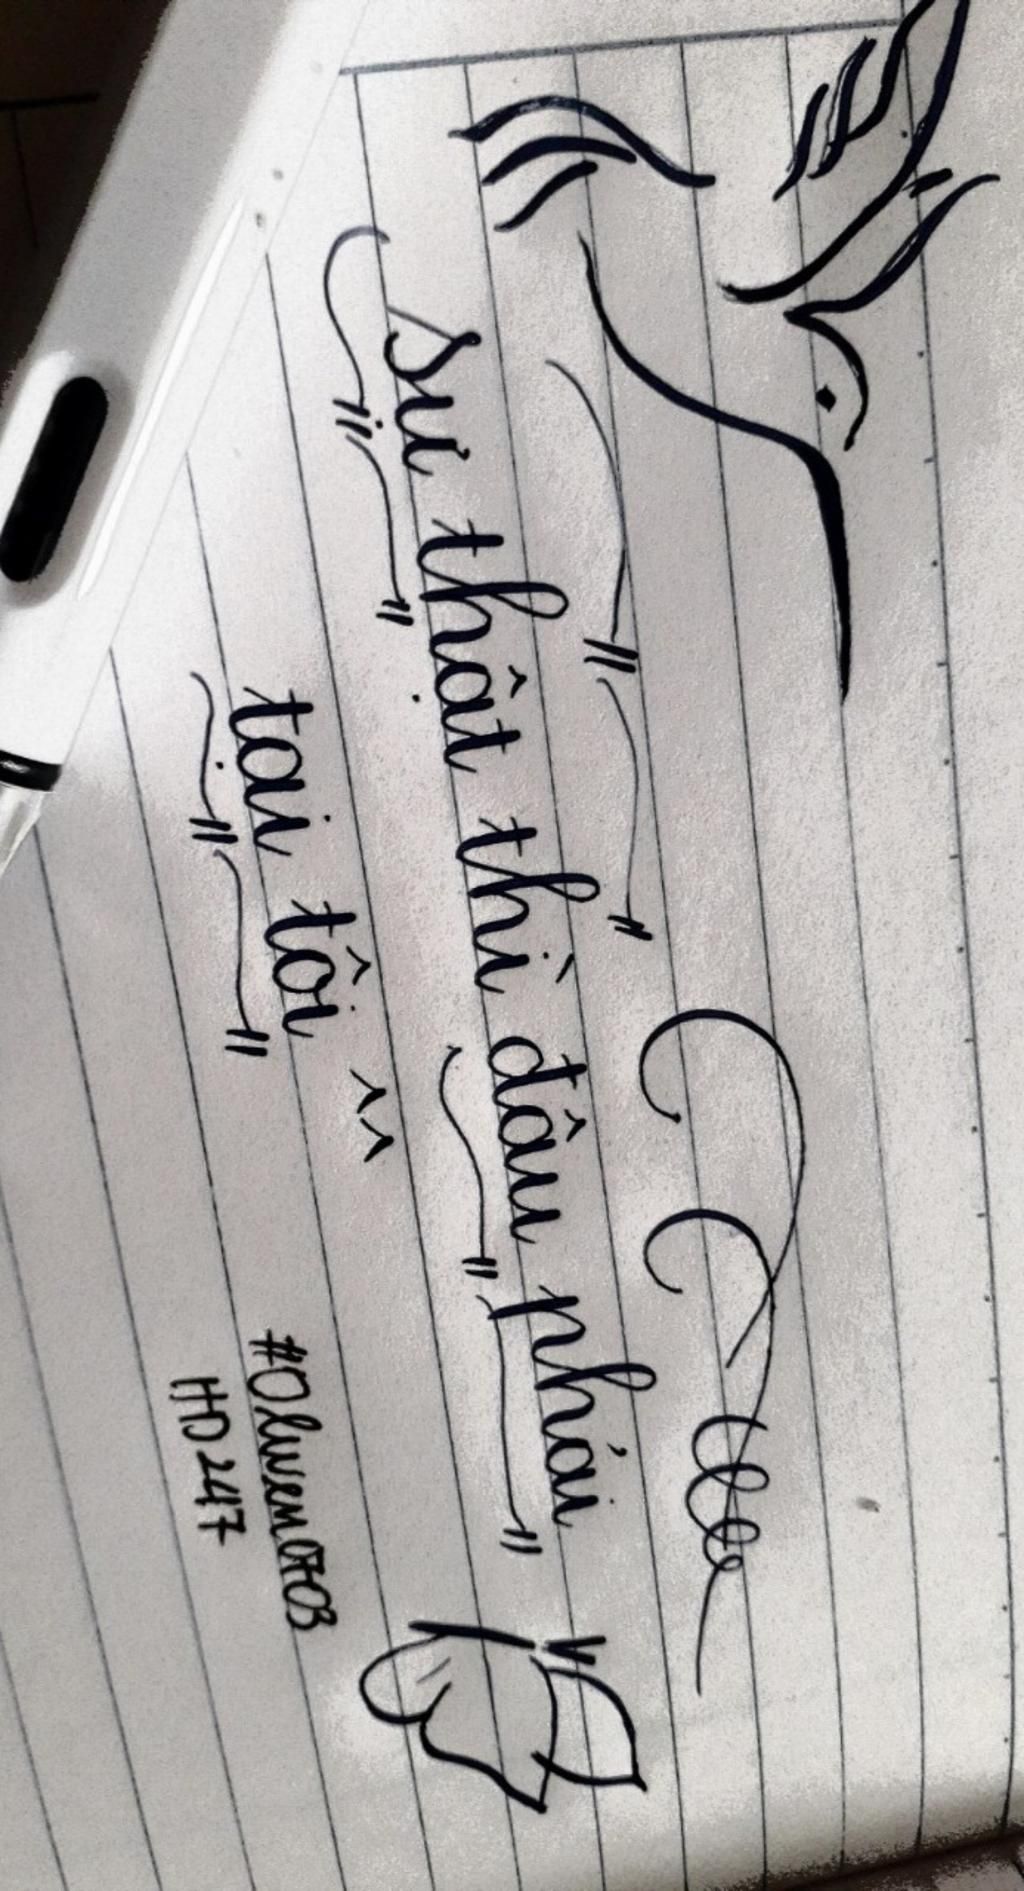 sự thật thì đâu phải
tại tôi ^^
#Olwen0703
HD247